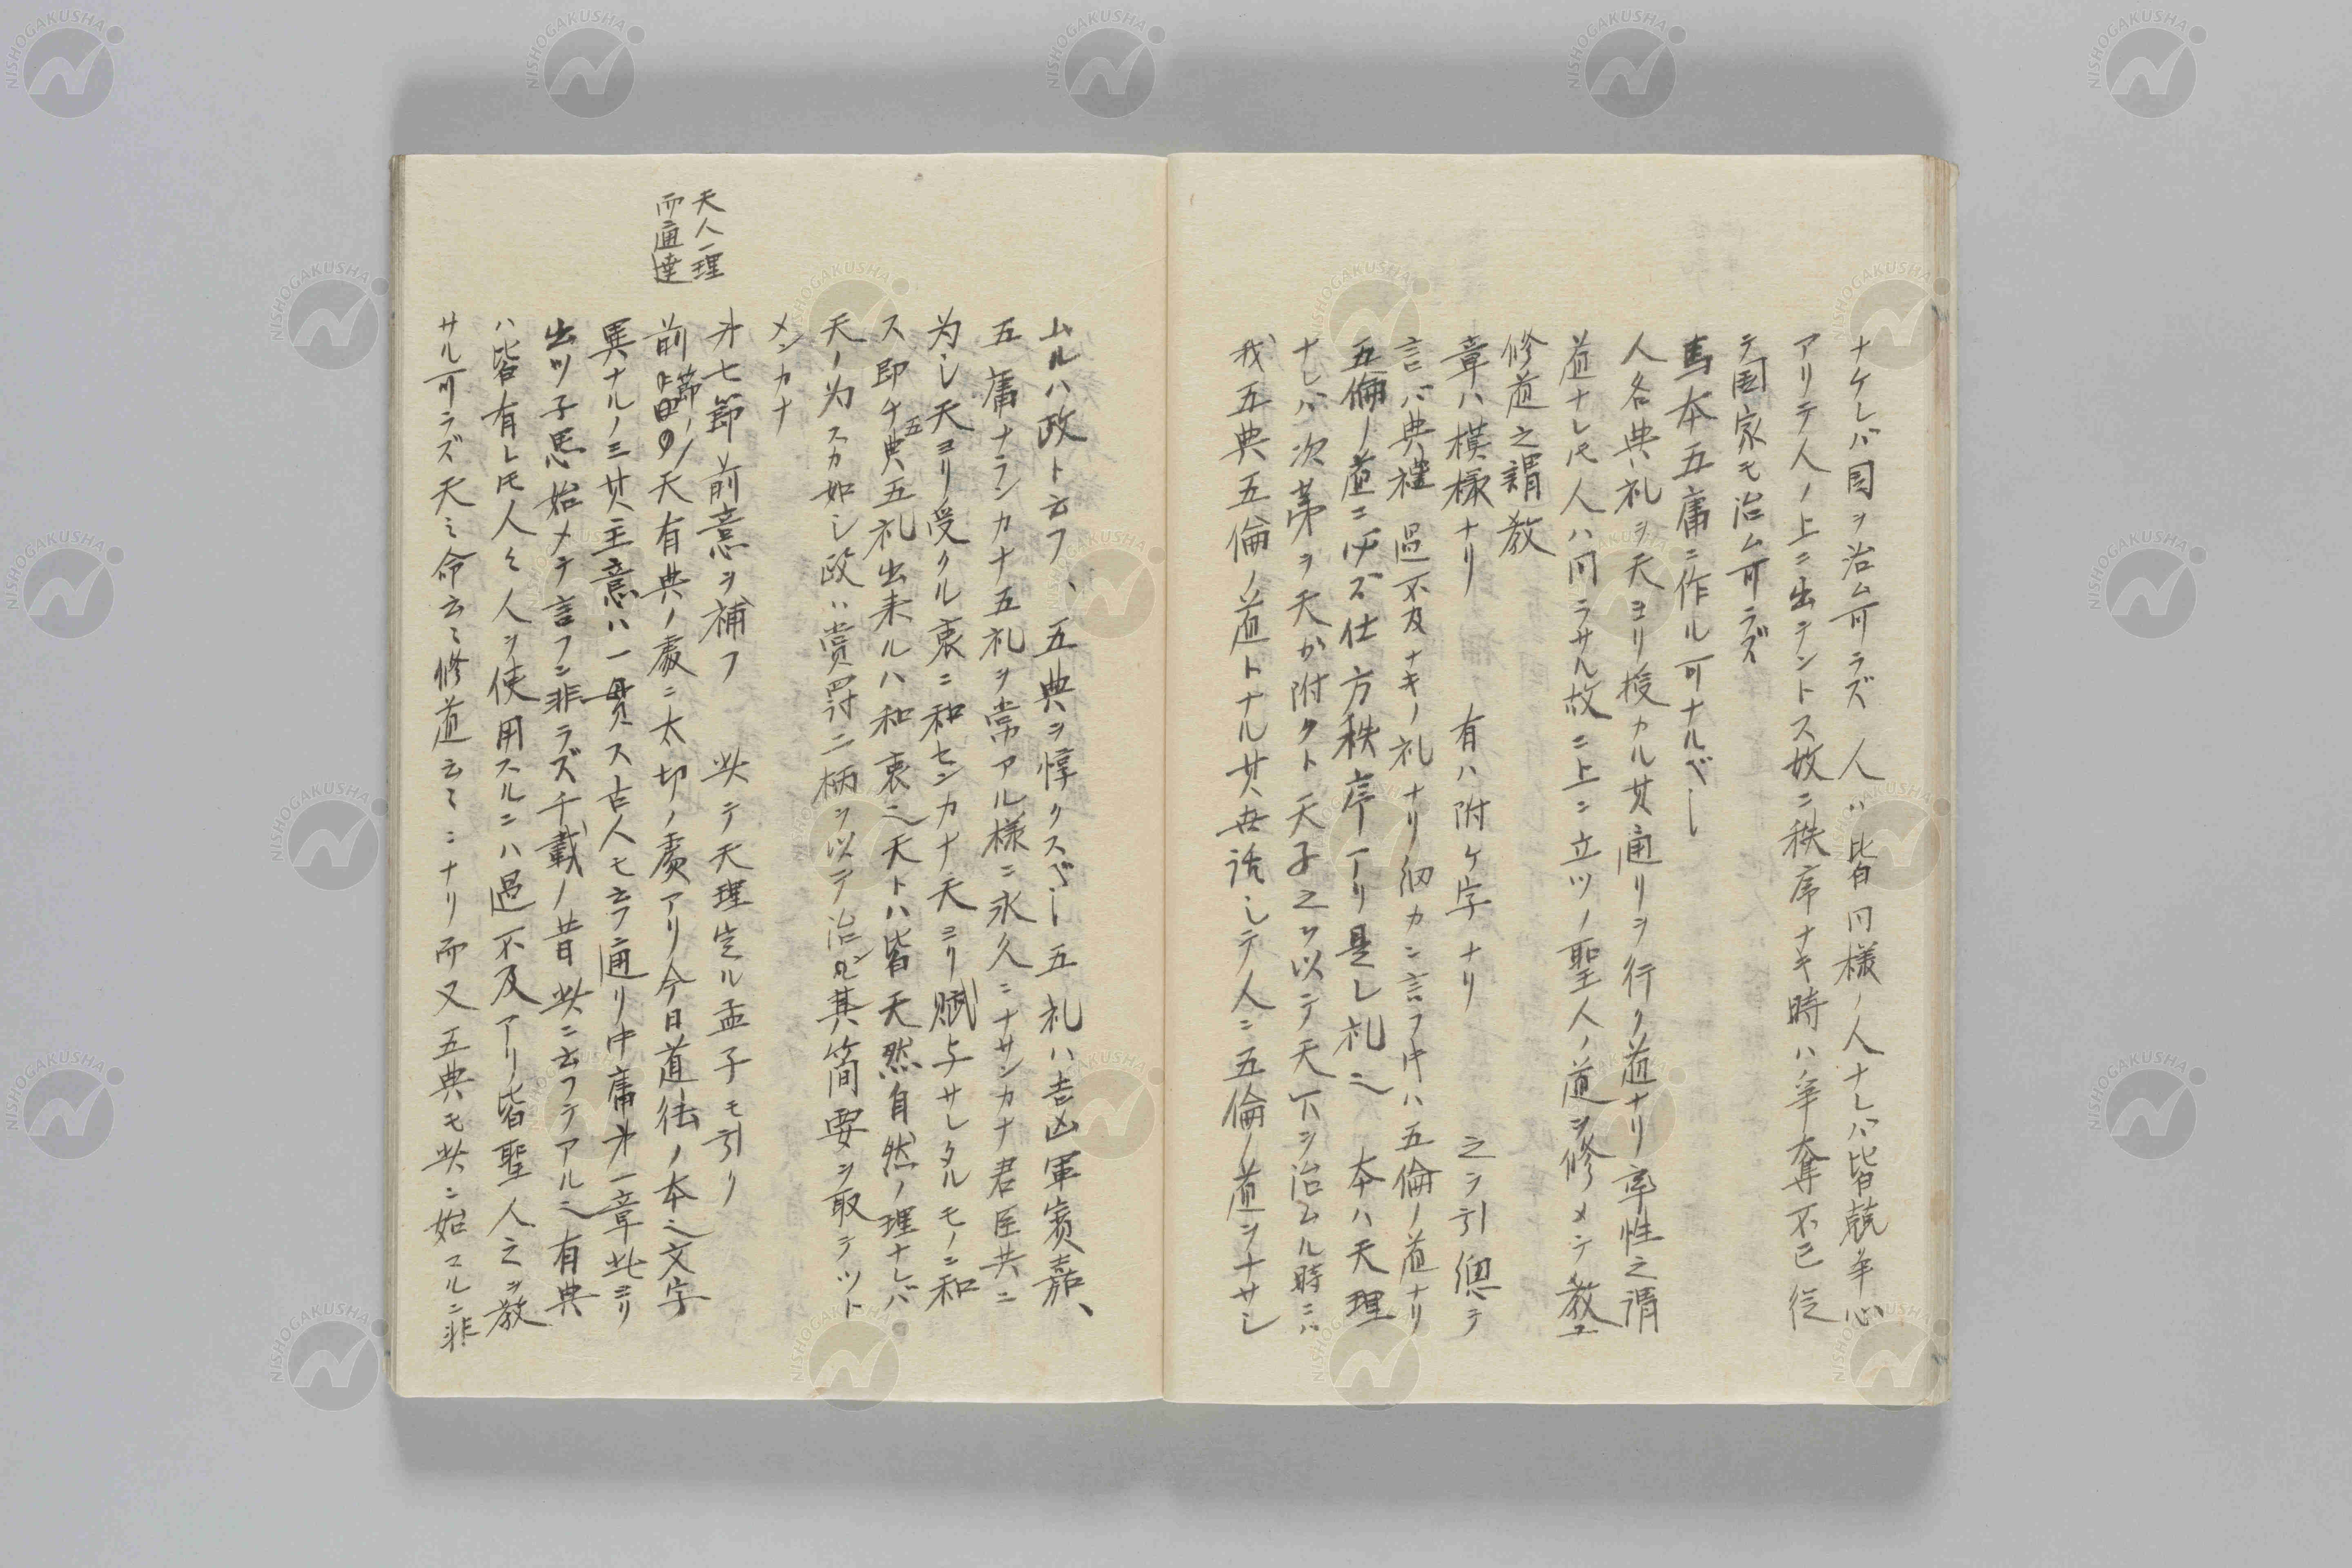 ナケレバ国ヲ治ム可ラズ 人ハ皆同様ノ人ナレバ皆競争心
アリテ人ノ上ニ出デントス故ニ秩序ナキ時ハ争奪不已従
テ国家モ治ム可ラズ
馬本五庸ニ作ル可ナルベシ
人各典礼ヲ天ヨリ授カル其通リヲ行ク道ナリ率性之謂
道ナレ𪜈人ハ同ラサル故ニ上ニ立ツノ聖人ノ道ヲ修メテ教エ
修道之謂教
章ハ模様ナリ 有ハ附ケ字ナリ 之ヲ引綑テ
言バ典禮 過不及ナキノ礼ナリ細カニ言フ中ハ五倫ノ道ナリ
五倫ノ道ニ必ズ仕方秩序アリ是レ礼也 本ハ天理
ナレバ次第ヲ天ガ附クト天子之ヲ以テ天下ヲ治ムル時ニハ
我五典五倫ノ道トナル其世話シテ人ニ五倫ノ道ヲナサシ
ムルハ政ト云フ、五典ヲ惇クスベシ五礼ハ吉凶軍賓嘉、
五庸ナランカナ五礼ヲ常アル様ニ永久ニナサンカナ君臣共ニ
為シ天ヨリ受クル衷ニ和センカナ天ヨリ賦与サレタルモノニ和
ス即チ五典五礼出来ルハ和衷也天トハ皆天然自然ノ理ナレバ
天ノ為スカ如シ政ハ賞罰二柄ヲ以テ治ン其簡要ヲ取テツト
メンカナ
天人一理
而通達
㐧七節前意ヲ補フ 此テ天理定ル孟子モ引ケリ
前節ノ天有典ノ處ニ太切ノ處アリ今日道徳ノ本也文字
異ナルノミ其主意ハ一貫ス古人モ云フ通リ中庸㐧一章此ヨリ
出ツ子思始メテ言フニ非ラズ千載ノ昔此ニ云フテアル也有典
ハ皆有レ𪜈人々人ヲ使用スルニハ過不及アリ皆聖人之ヲ教
サル可ラズ天ミ命云ミ修道云ミニナリ而又五典モ此ニ始マルニ非